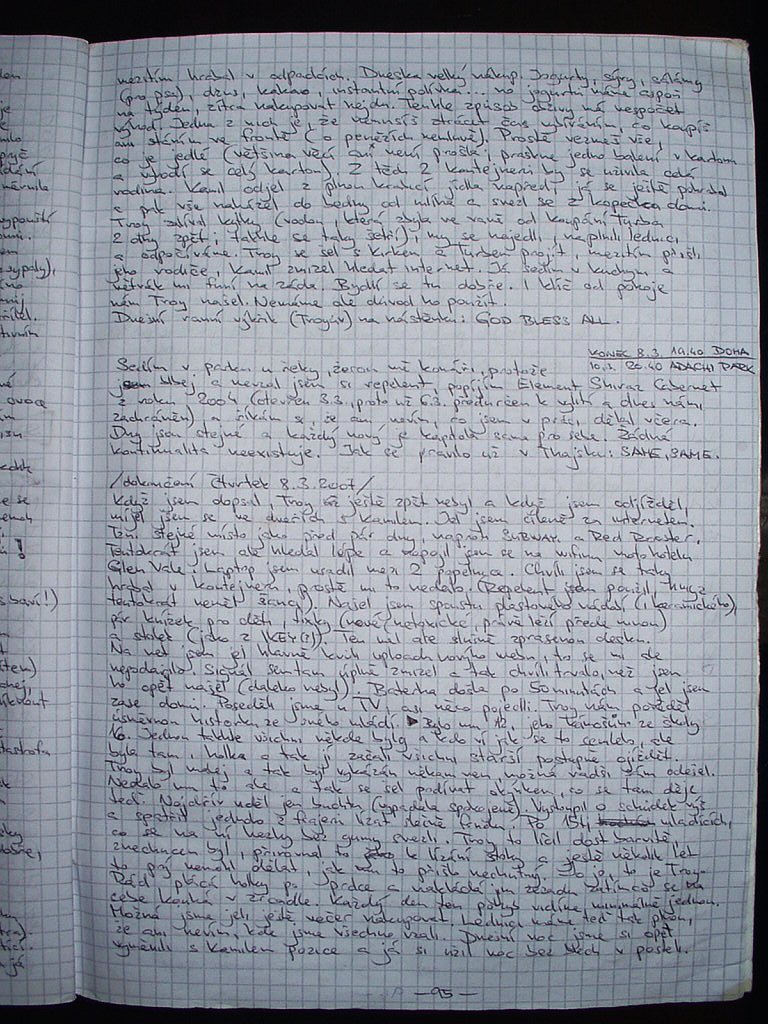 mezitím hrabal v odpadcích. Dneska velký nákup. Jogurty, sýry, salámy
(pro psa), džus, kakao, instantní polívka... no jogurtů máme aspoň
na týden, zítra nakupovat nejdu. Tenhle způsob obživy má nespočet
výhod. Jedna z nich je, že nemusíš ztrácet čas vybíráním, co koupíš
ani stáním ve frontě (o penězích nemluvě). Prostě vezmeš vše,
co je jedlé (většina věcí ani není prošlá, praskne jedno balení v kartonu
a vyhodí se celý karton). Z těch 2 kontejnerů by se uživila celá
rodina. Kamil odjel z plnou krabicí jídla napřed, já se ještě pohrabal
a pak vše naložil do bedny od mlíka a svezl se z kopečka domů.
Troy zalíval kytky (vodou, která zbyla ve vaně od koupání Tysba
2 dny zpět, takhle se taky šetří), my se najedli, naplnili lednici
a odpočíváme. Troy se šel s Kirkem a projít, mezitím přišli
jeho rodiče, Kamil zmizel hledat internet. Já sedím v kuchyni a
větrák mi funí na záda. Bydlí se tu dobře. I klíč od pokoje
nám Troy našel. Nemáme ale důvod ho použít.
Dnešní ranní výkřik (Troyův) na nástěnku: GOD BLESS ALL.
KONEC 8.3. 19.40 DOMA
10.3. 20.40 ADACHI PARK
Sedím v parku u řeky, žerou mě komáři, protože
jsem blbej a nevzal jsem si repelent, popíjím Element Shiraz Cabernet
z roku 2004 (otevřen 3.3, proto už 6.3. předurčen k vylití a dnes námi
zachráněn) a říkám si, že ani nevím, co jsem v práci dělal včera.
Dny jsou stejné a každý nový je kapitola sama pro sebe. Žádná
kontinualita neexistuje. Jak se pravilo už v Thajsku: SAME, SAME.
/dokončení čtvrtek 8.3.2007/
Když jsem dopsal, Troy ještě zpět nebyl a když jsem odjížděl,
míjel jsem se ve dveřích s Kamilem. Jel jsem cíleně za internetem.
Tzn. stejné místo jako před pár dny, naproti SUBWAY a Red Rooster.
Tentokrát jsem ale hledal lépe a napojil jsem se na wifinu motohotelu
Glen Vale. Laptop jsem usadil mezi 2 popelnice. Chvíli jsem se taky
hrabal v kontejneru, prostě mi to nedalo. (Repelent jsem použil, hmyz
tentokrát neměl šanci). Našel jsem spoustu plastového nádobí (i keramického),
pár knížek pro děti, fixky (nové, netoxické, právě leží přede mnou)
a stolek (jako z IKEY(?)). Ten měl ale slušně zprasenou desku.
Na net jsem jel hlavně kvůli uploadu nového webu, to se mi ale
nepodařilo. Signál semtam úplně zmizel a tak chvíli trvalo, než jsem
ho opět našel (daleko nebyl). Baterka došla po 50 minutách a jel jsem
zase domů. Poseděli jsme u TV, asi něco pojedli. Troy nám pověděl
úsměvnou historku ze svého mládí. Bylo mu 12, jeho kámošům ze školy
16. Jednou takhle všichni někde byly a kdo ví jak se to semlelo, ale
byla tam i holka a tak jí začali všichni starší postupně ojíždět.
Troy byl mladej a tak byl vykázán někam ven, možná radši sám odešel.
Nedalo mu to ale a tak se šel podívat okýnkem, co se tam děje
teď. Nejdřív viděl jen buchtu (vypadala spokojeně). Vystoupil o schůdek výš
a spatřil jednoho z frajerů lízat slečně fendu. Po 15ti mladících,
co se na ní hezky bez gumy svezli. Troy to líčil dost barvitě,
znechucen byl, přirovnal to k lízání stoky a ještě několik let
to prý nemohl dělat, jak mu to přišlo nechutný. Jo jo, to je Troy.
Rád plácá holky po prdce a nakládá jim zezadu zatímco se na
sebe kouká v zrcadle. Každý den ten pohyb vidíme minimálně jednou.
Možná jsme jeli ještě večer nakupovat. Lednici máme teď tak plnou,
že ani nevím, kde jsme všechno vzali. Dnešní noc jsme si opět
vyměnili s Kamilem pozice a já si užil noc bez blech v posteli.
—95—